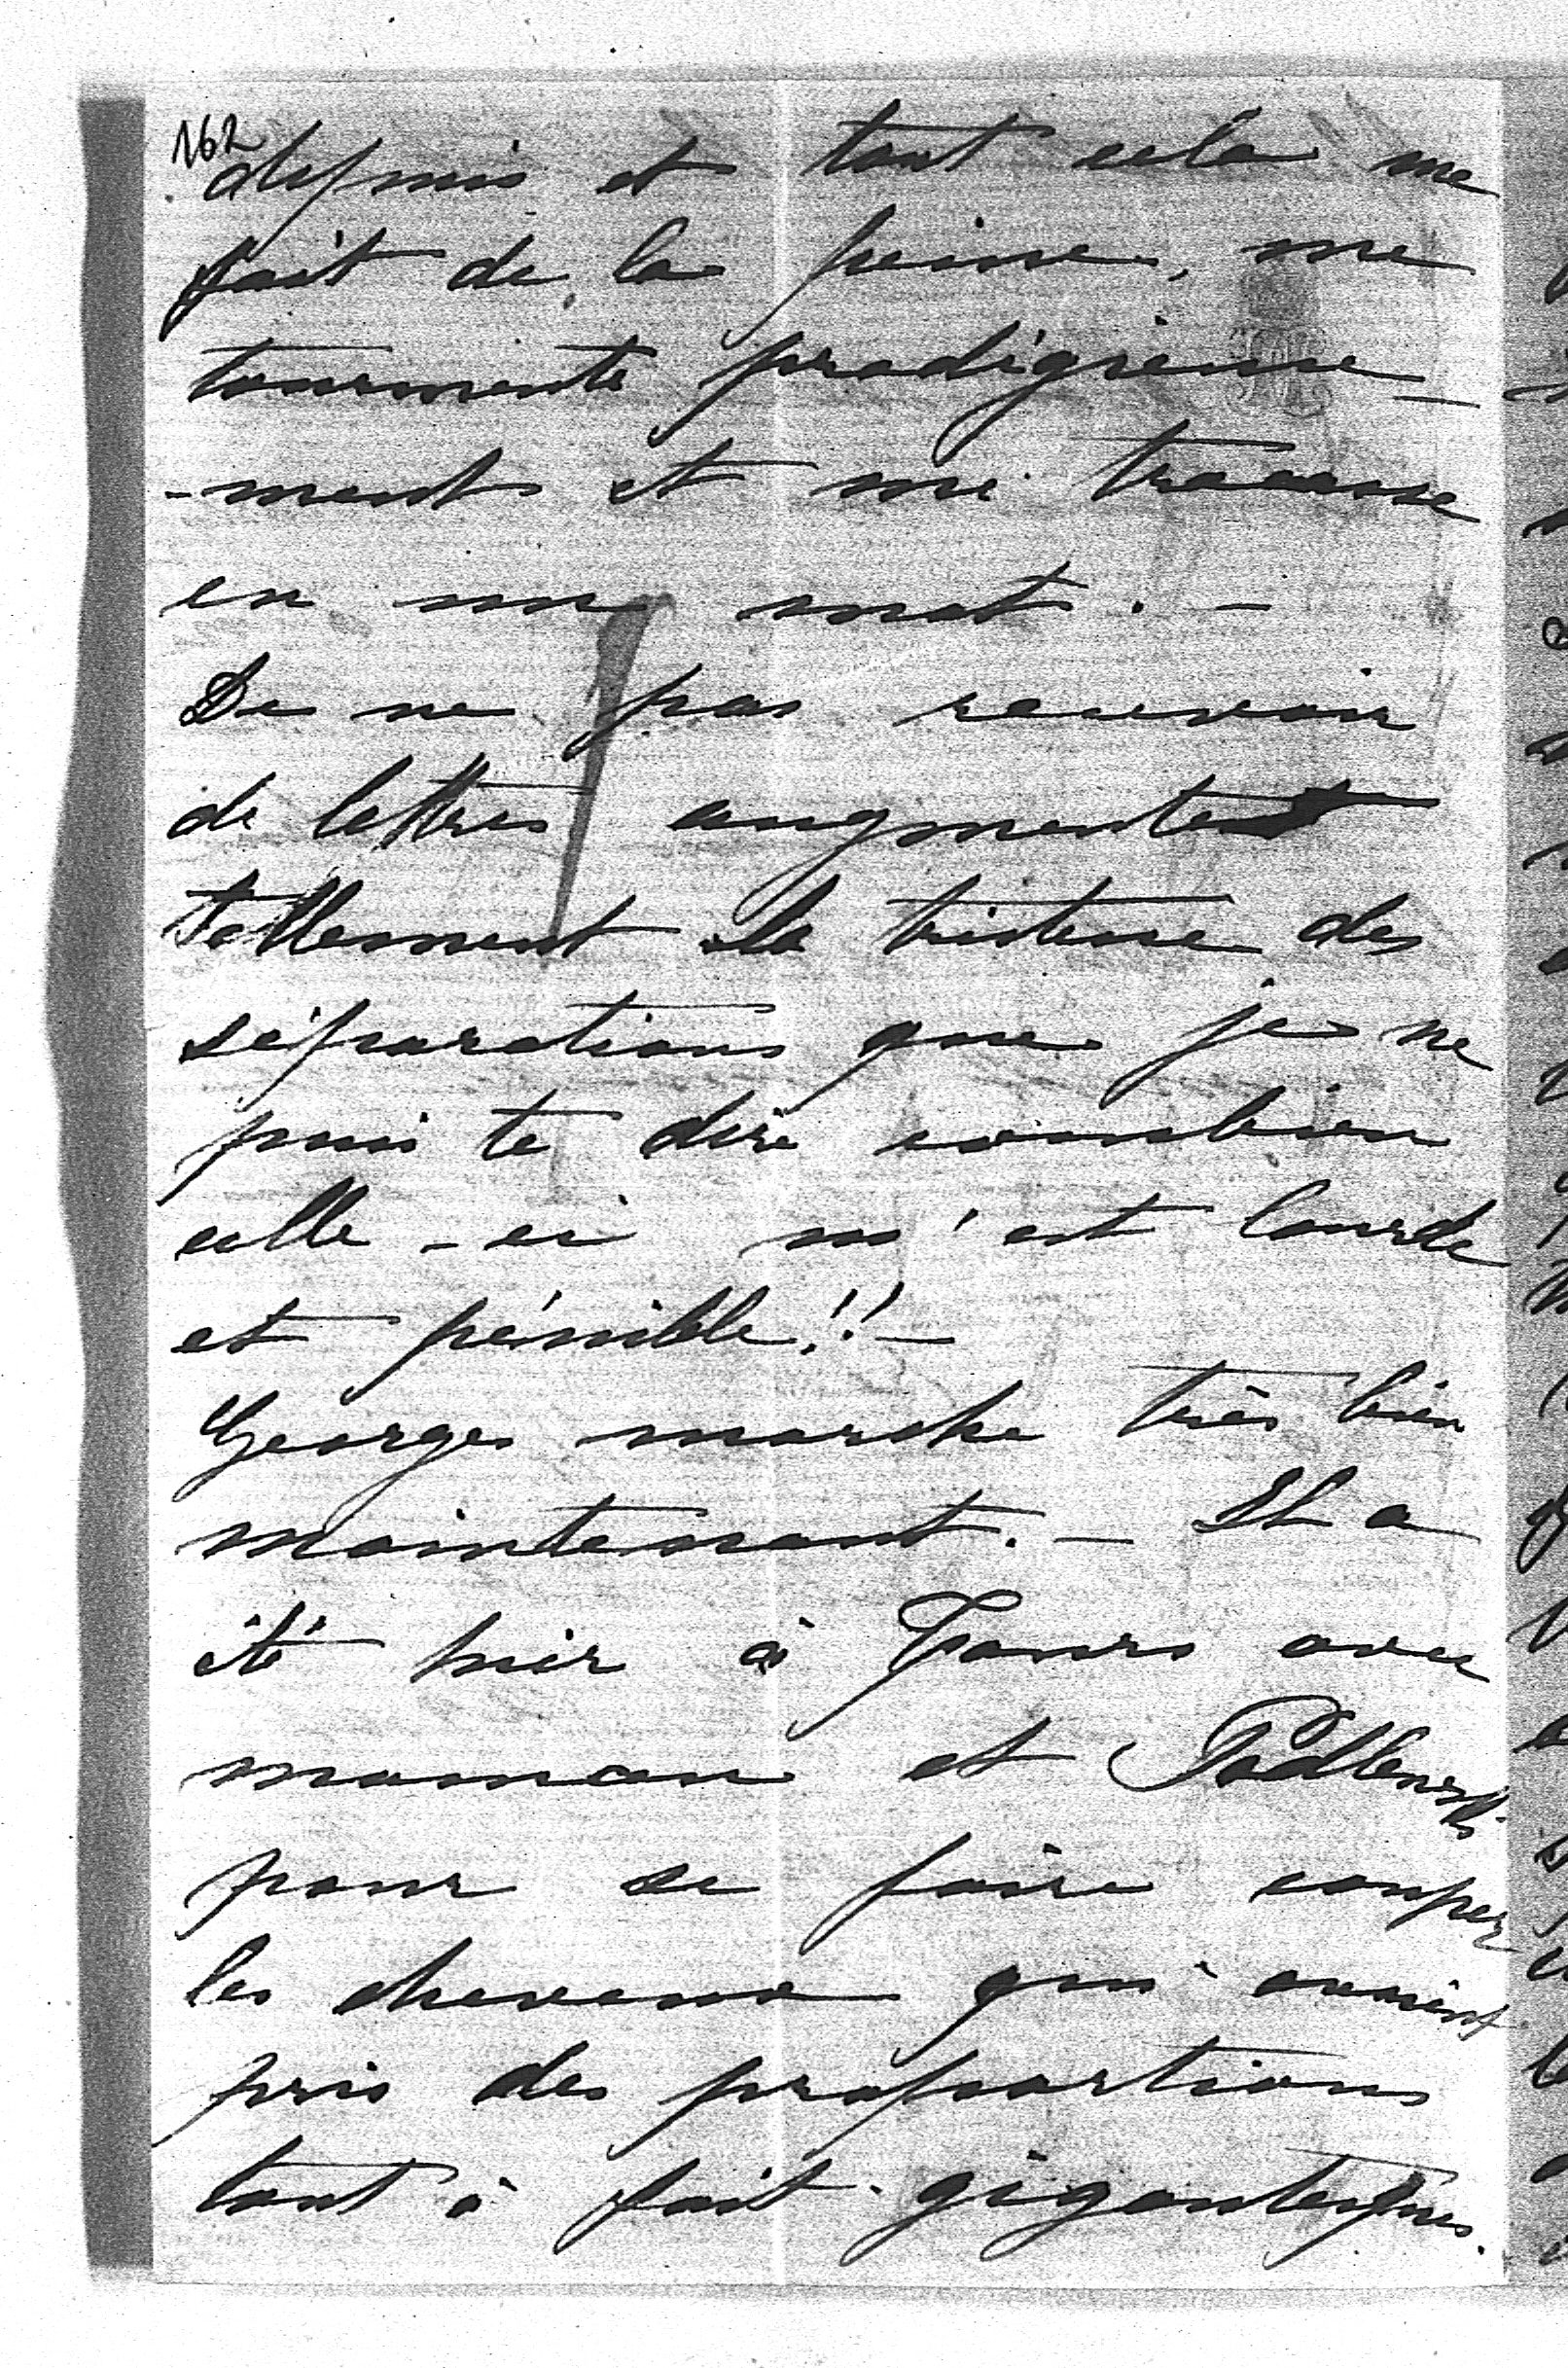 162
depuis et tout cela me
fait de la peine, me
tourmente prodigieuse-
-ment et me tracasse
en un mot. -
De ne pas recevoir
de lettres augmente
tellement la tristesse des
séparations que je ne
puis te dire combien
celle-ci m'est lourde
et pénible!! -
Georges marche très bien
maintenant. - Il a
été hier à Tours avec
maman et
pour se faire couper
les cheveux qui avaient
pris des proportions
tout à fait gigantesques.